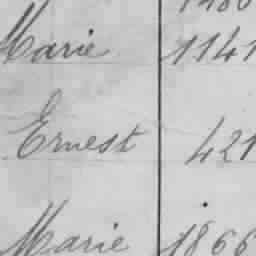 Marie 1141
Ernest 421
Marie 1866